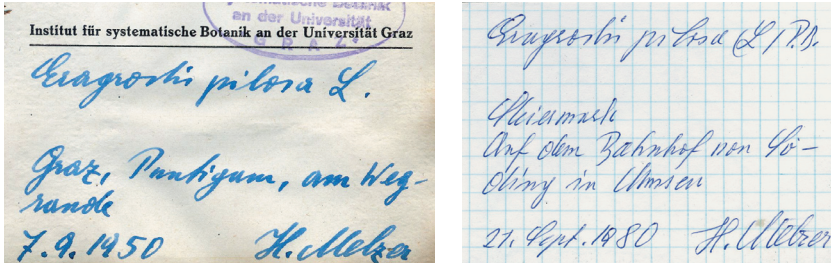 systematische Botanik
an der Universität
GRAZ
Institut für systematische Botanik an der Universität Graz
Eragrostis pilosa L.
Graz, Puntigam, am Weg-
rande
7.9.1950 H. Melzer
Eragrostis pilosa (L.) P.B.
Steiermark
Auf dem Bahnhof von Sö-
ding in Massen
21. Sept. 1980 H. Melzer